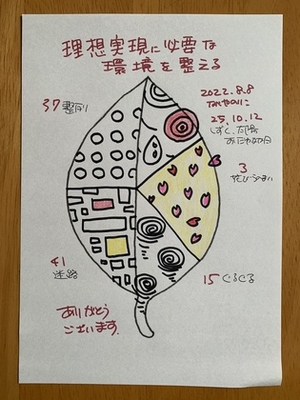 理想実現に必要な
環境を整える
37
整列
2022.8.8
25.10.12
しずく、太陽
3
花びらうまい
41
迷路
15 ぐるぐる
ありがとう
ございます